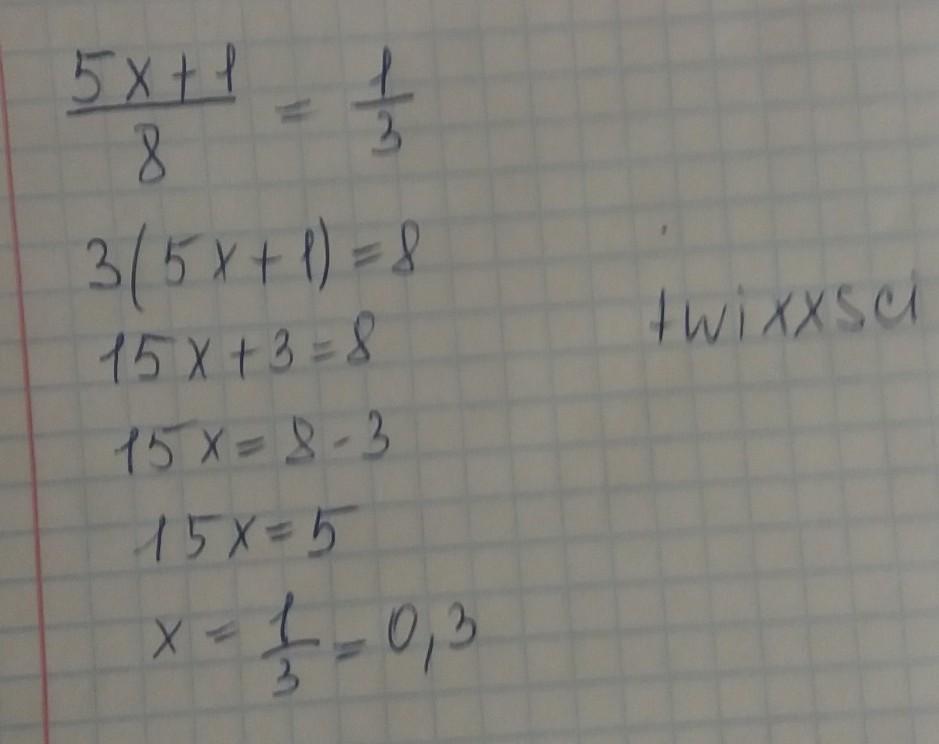 5x+1/8 = 1/3
3(5x+1)=8
15x+3=8
twixxsci
15x=8-3
15x=5
x=1/3=0,3